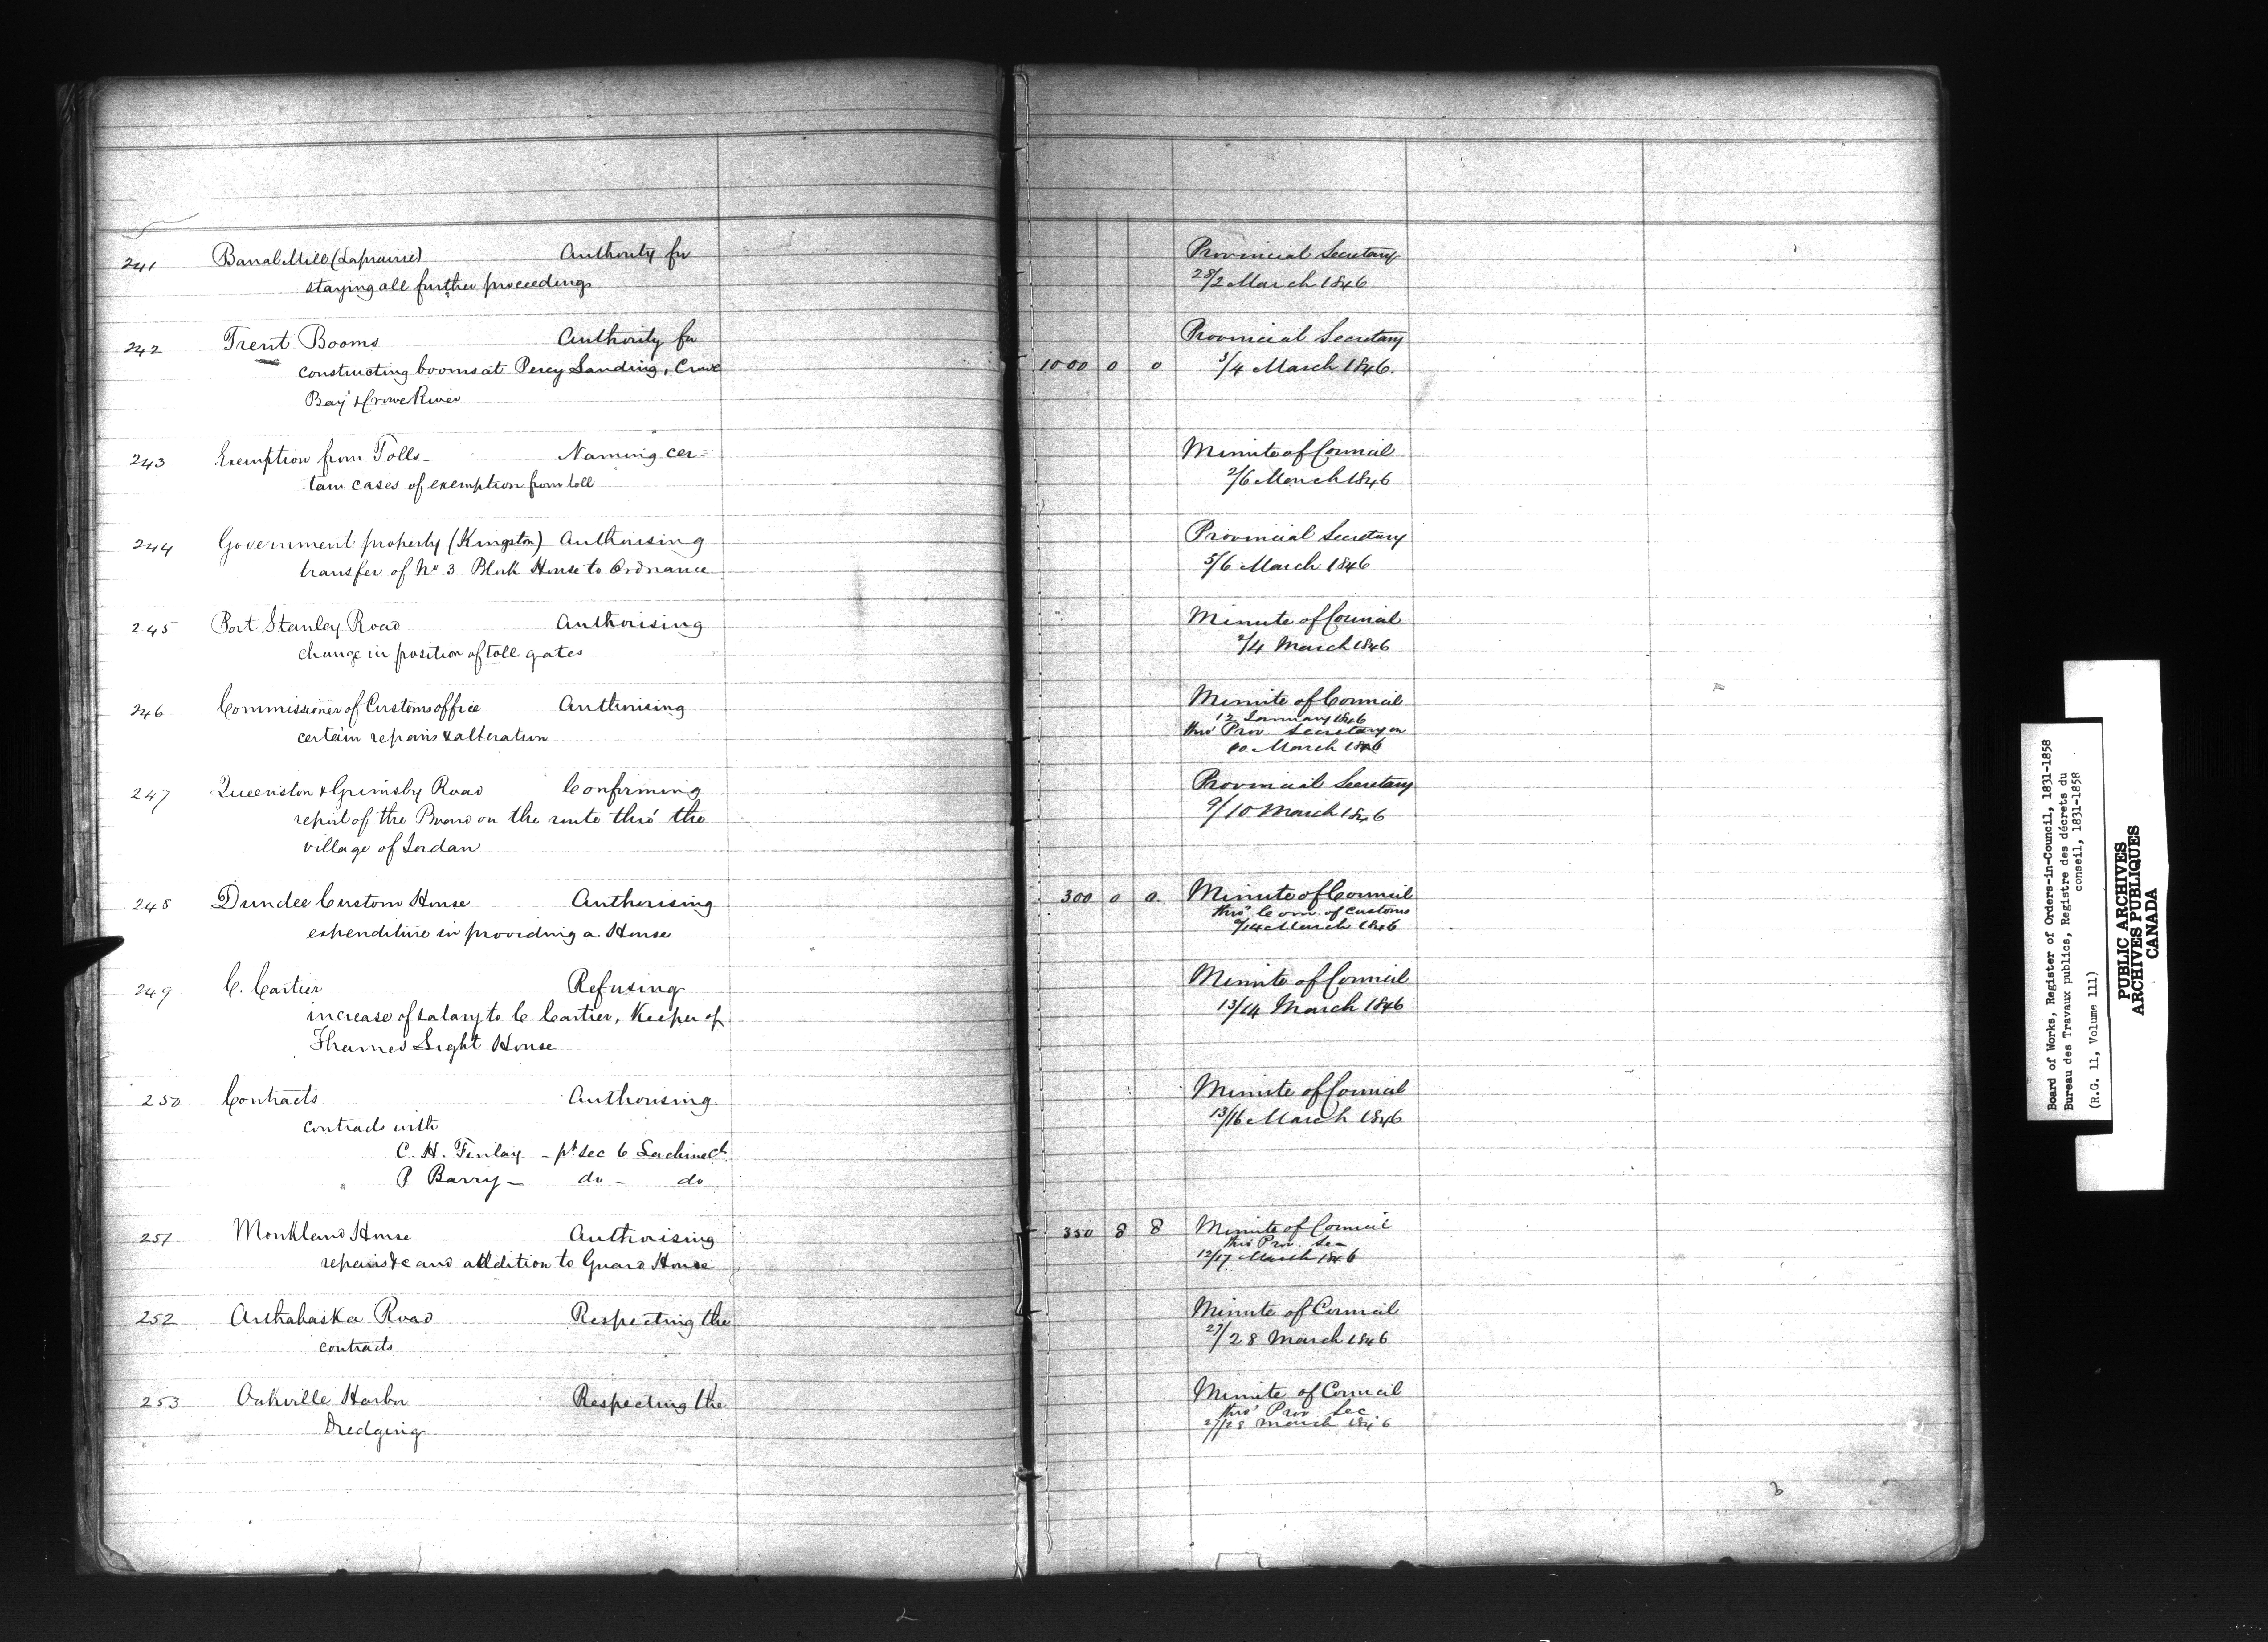 241 Banal Mill (Laprairie) Authority for
staying all further proceedings
Provincial Secretary
28/2 March 1846
242 Trent Booms Authority for
constructing booms at Percy Landing, Crowe
Bay & Crowe River
1000 0 0
Provincial Secretary
3/4 March 1846.
243 Exemption from Tolls - Naming cer-
tain cases of exemption from toll
Minute of Council
2/6 March 1846
244 Government property (Kingston) Authorising
transfer of No 3 Block House to Ordnance
Provincial Secretary
5/6 March 1846
245 Port Stanley Road Authorising
change in position of toll gates
Minute of Council
2/4 March 1846
246 Commissioner of Customs office Authorising
certain repairs & alteration
Minute of Council
12 January 1846
thro' Prov. Secretary on
10 March 1846
247 Queenston & Grimsby Road Confirming
report of the Board on the route thro' the
village of Jordan
Provincial Secretary
9/10 March 1846
248 Dundee Custom House Authorising
expenditure in providing a House
300 0 0
Minute of Council
thro' Com. of Customs
9/14 March 1846
249 C. Cartier Refusing
increase of salary to C. Cartier, Keeper of
Thames Light House
Minute of Council
13/14 March 1846
250 Contracts Authorising
contracts with
C. H. Finlay - pt Sec 6 Lachine Cl
P Barry - do - do
Minute of Council
13/16 March 1846
251 Monkland House Authorising
repairs &c and addition to Guard House
350 8 8
Minute of Council
thro Prov. Sec
12/17 March 1846
252 Arthabaska Road Respecting the
contracts
Minute of Council
27/28 March 1846
253 Oakville Harbor Respecting the
Dredging
Minute of Council
thro' Prov Sec
27/28 March 1846
Board of Works, Register of Orders-in-Council, 1831-1858
Bureau des Travaux publics, Registre des décrets du
conseil, 1831-1858
(R.G. 11, Volume 111)
PUBLIC ARCHIVES
ARCHIVES PUBLIQUES
CANADA